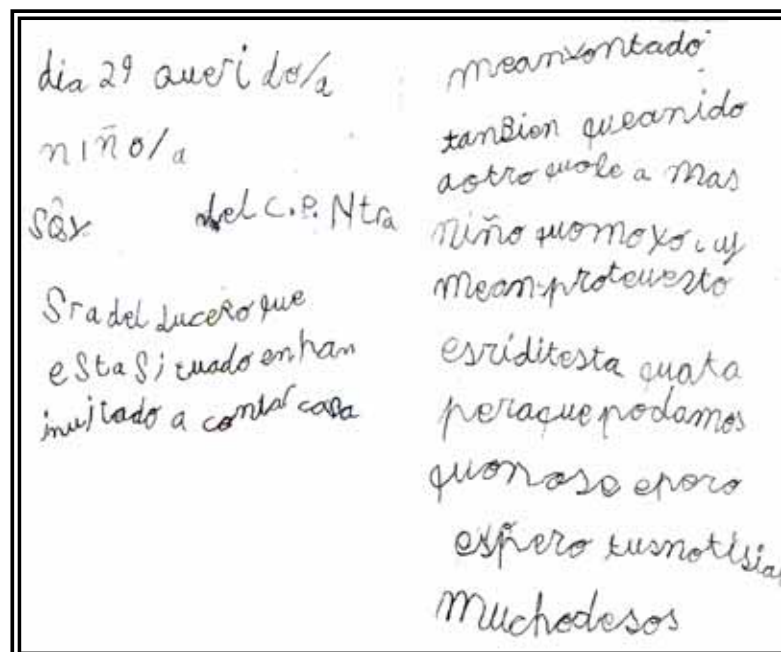 dia 29 querido/a
niño/a
soy del C.P. Ntra
Sra del Lucero que
esta Situado en han
invitado a contar cara
mean contado
tanBien queanido
aotro quole a mas
niño quomo yo, y
mean protuesto
esríditesta quata
peraque podamos
quonose eporo
espero tusnotisias
muchodesos